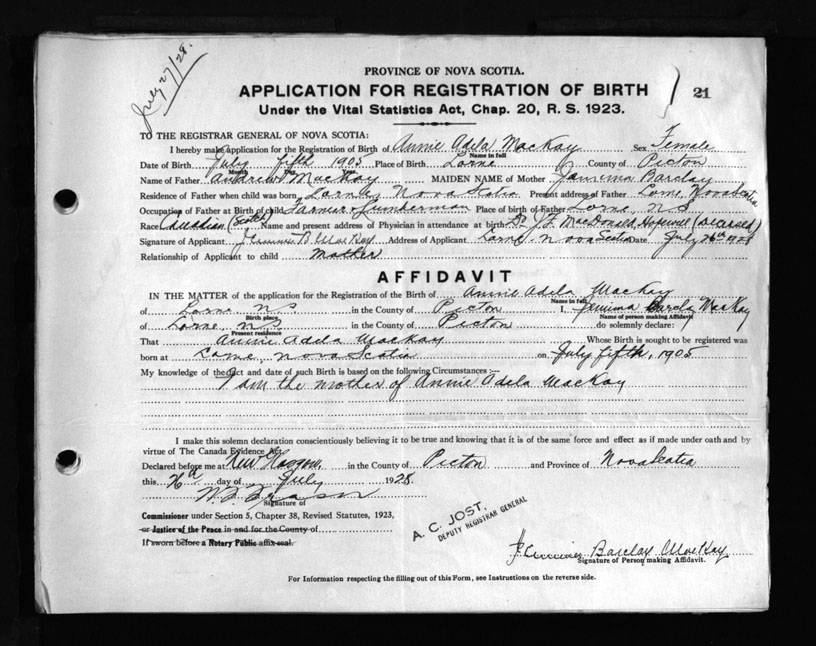 July 27/28.
PROVINCE OF NOVA SCOTIA.
APPLICATION FOR REGISTRATION OF BIRTH
21
Under the Vital Statistics Act, Chap. 20, R. S. 1923.
TO THE REGISTRAR GENERAL OF NOVA SCOTIA:
I hereby make application for the Registration of Birth of Annie Adela MacKay Sex Female
Name in full
Date of Birth July fifth 1905 Place of Birth Lorne County of Picton
Month Day Year
Name of Father Andrew MacKay MAIDEN NAME of Mother Jamima Barclay
Residence of Father when child was born Lorne, Nova Scotia Present address of Father Lorne, Nova Scotia
Occupation of Father at Birth of child Farmer & Lumberman Place of birth of Father Lorne, N S
Race Canadian (Scotch) Name and present address of Physician in attendance at birth Dr J. F. MacDonald Hopewell (Deceased)
Signature of Applicant B MacKay Address of Applicant Lorne Nova Scotia Date July 26th 1928
Relationship of Applicant to child mother
AFFIDAVIT
IN THE MATTER of the application for the Registration of the Birth of Annie Adela MacKay
Name in full
of Lorne N S in the County of Picton I, Jemima Barclay MacKay
Birth place Name of person making Affidavit
of Lorne, N S in the County of Picton do solemnly declare:
Present residence
That Annie Adela MacKay Whose Birth is sought to be registered was
born at Lorne, Nova Scotia on July fifth, 1905
My knowledge of the fact and date of such Birth is based on the following Circumstances:—
I am the mother of Annie Adela MacKay
I make this solemn declaration conscientiously believing it to be true and knowing that it is of the same force and effect as if made under oath and by
virtue of The Canada Evidence Act.
Declared before me at New Glasgow, in the County of Picton and Province of Nova Scotia
this 26th day of July 1928
Signature of
Commissioner under Section 5, Chapter 38, Revised Statutes, 1923,
or Justice of the Peace in and for the County of
If sworn before a Notary Public affix seal.
A. C. JOST,
DEPUTY REGISTRAR GENERAL
Barclay MacKay
Signature of Person making Affidavit.
For Information respecting the filling out of this Form, see Instructions on the reverse side.